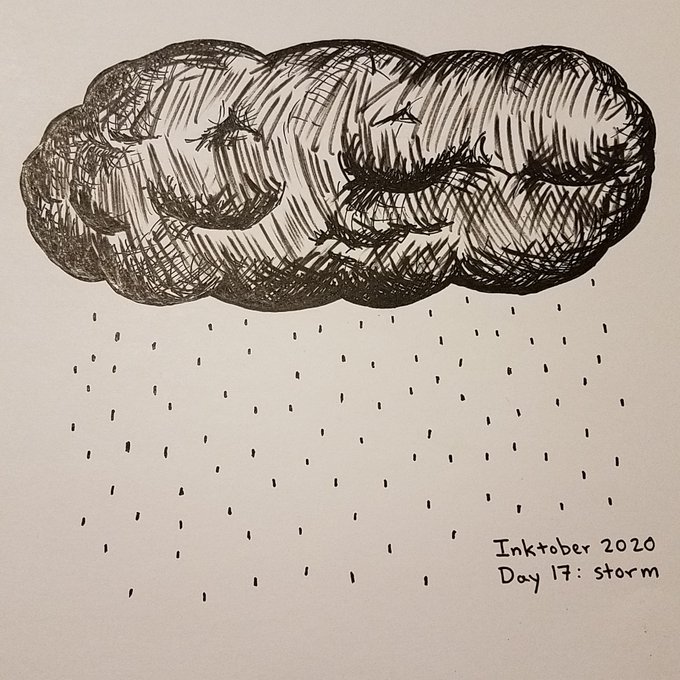 Inktober 2020
Day 17: storm